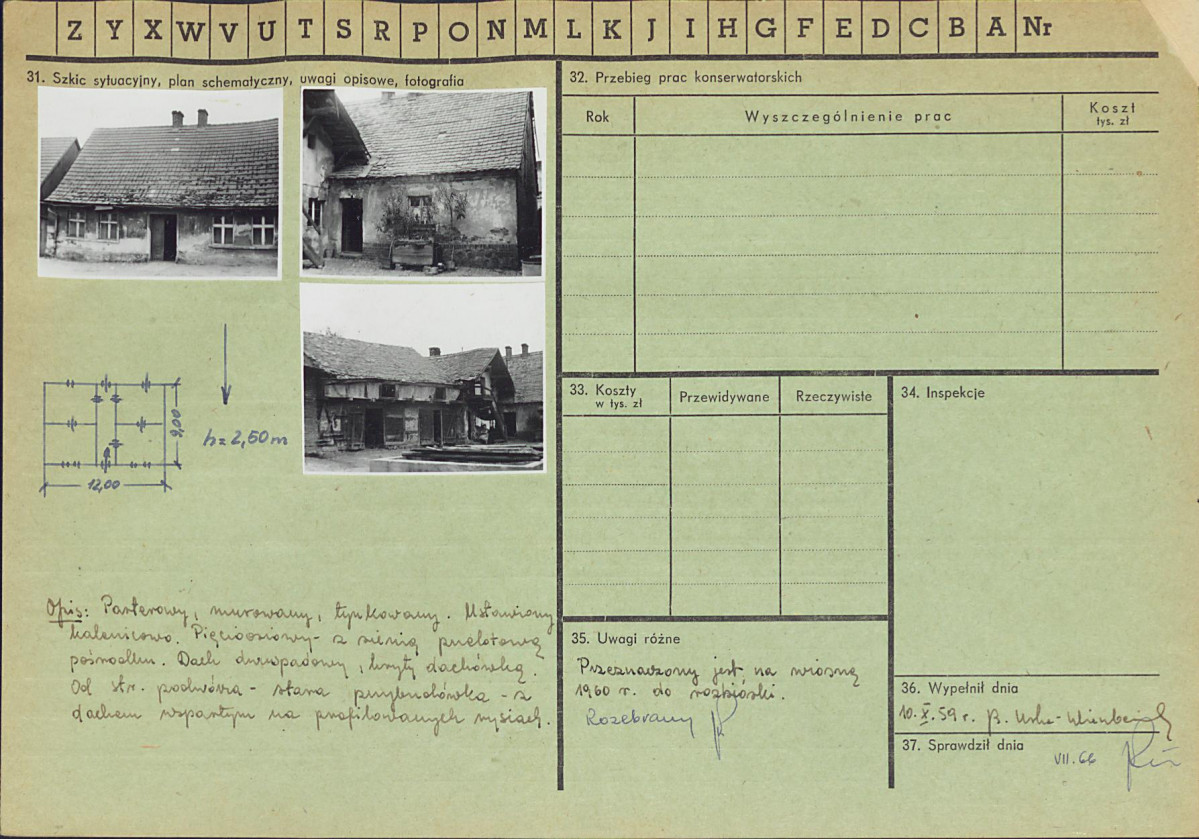 Z Y X W V U T S R P O N M L K J I H G F E D C B A Nr
31. Szkic sytuacyjny, plan schematyczny, uwagi opisowe, fotografia
h = 2,50 m
9,00
12,00
Opis: Parterowy, murowany, tynkowany. Ustawiony
kalenicowo. Pięcioosiowy - z sienią przelotową
pośrodku. Dach dwuspadowy, kryty dachówką.
Od str. podwórza - stara przybudówka - z
dachem wspartym na profilowanych rysiach.
32. Przebieg prac konserwatorskich
Rok
Wyszczególnienie prac
Koszt
tys. zł
33. Koszty
w tys. zł
Przewidywane
Rzeczywiste
34. Inspekcje
35. Uwagi różne
Przeznaczony jest na wiosnę
1960 r. do rozbiórki.
Rozebrany
36. Wypełnił dnia
10. X. 59 r. B.
37. Sprawdził dnia
VII. 66